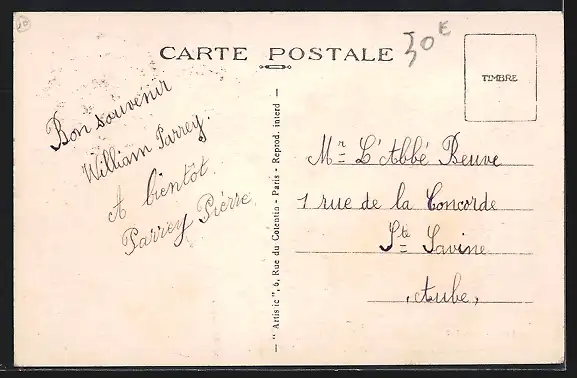 CARTE POSTALE
30€
TIMBRE
Bon souvenir
William Parrey.
A bientôt.
Parrey Pierre.
— "Artistic", 6, Rue du Cotentin - Paris - Reprod. interd —
Mr L'Abbé Beuve
1 rue de la Concorde
Ste Savine
Aube